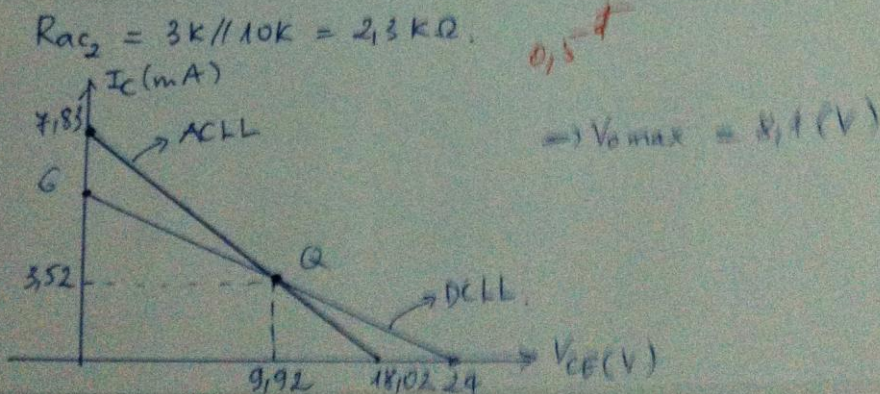 Rac₂ = 3K//10K = 2,3 KΩ.
0,5
Ic (mA)
7,83
ACLL
=> Vomax = 8,1 (V)
6
Q
3,52
DCLL.
9,92
18,02
24
VCE (V)